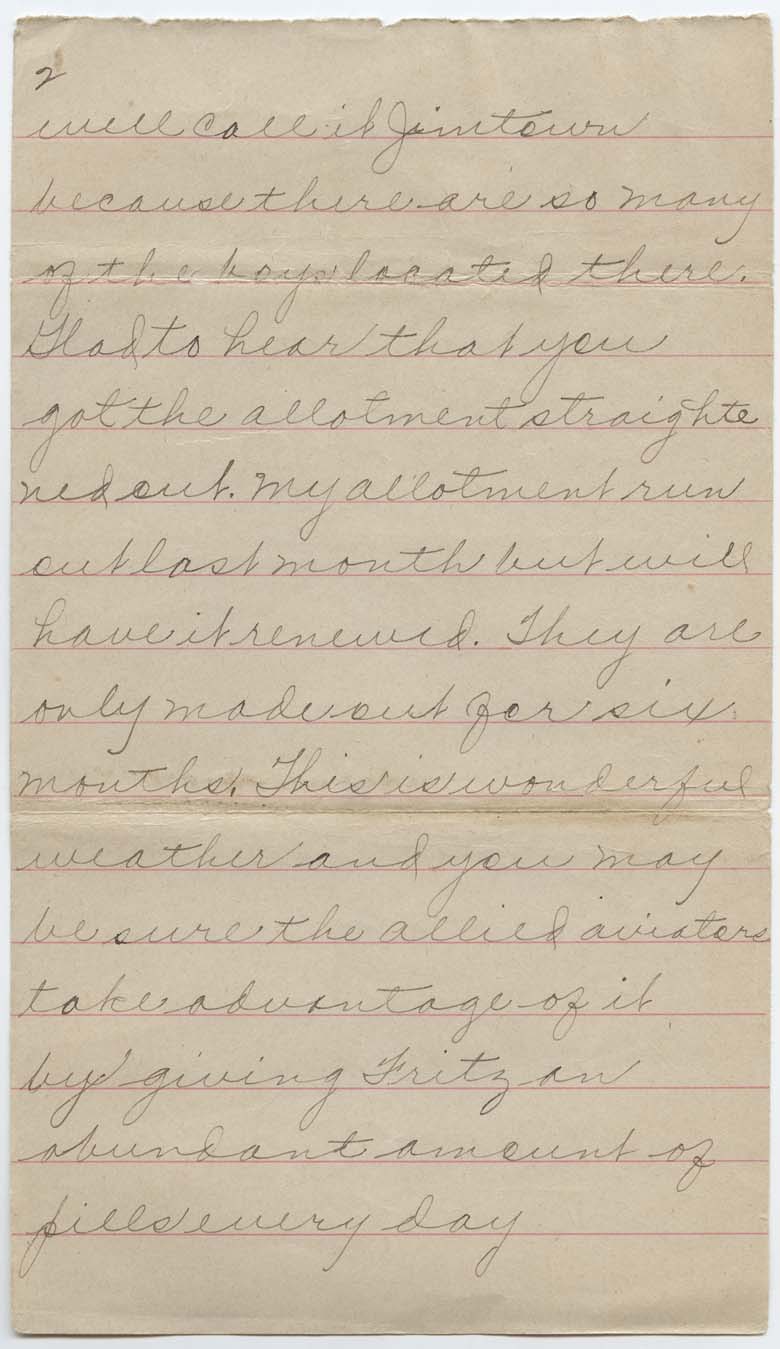 2
well call it Jimtown
because there are so many
of the boys located there.
Glad to hear that you
got the allotment straighte
ned out. My allotment run
out last month but will
have it renewed. They are
only made out for six
months. This is wonderful
weather and you may
be sure the allied aviators
take advantage of it
by giving Fritz an
abundant amount of
pills every day